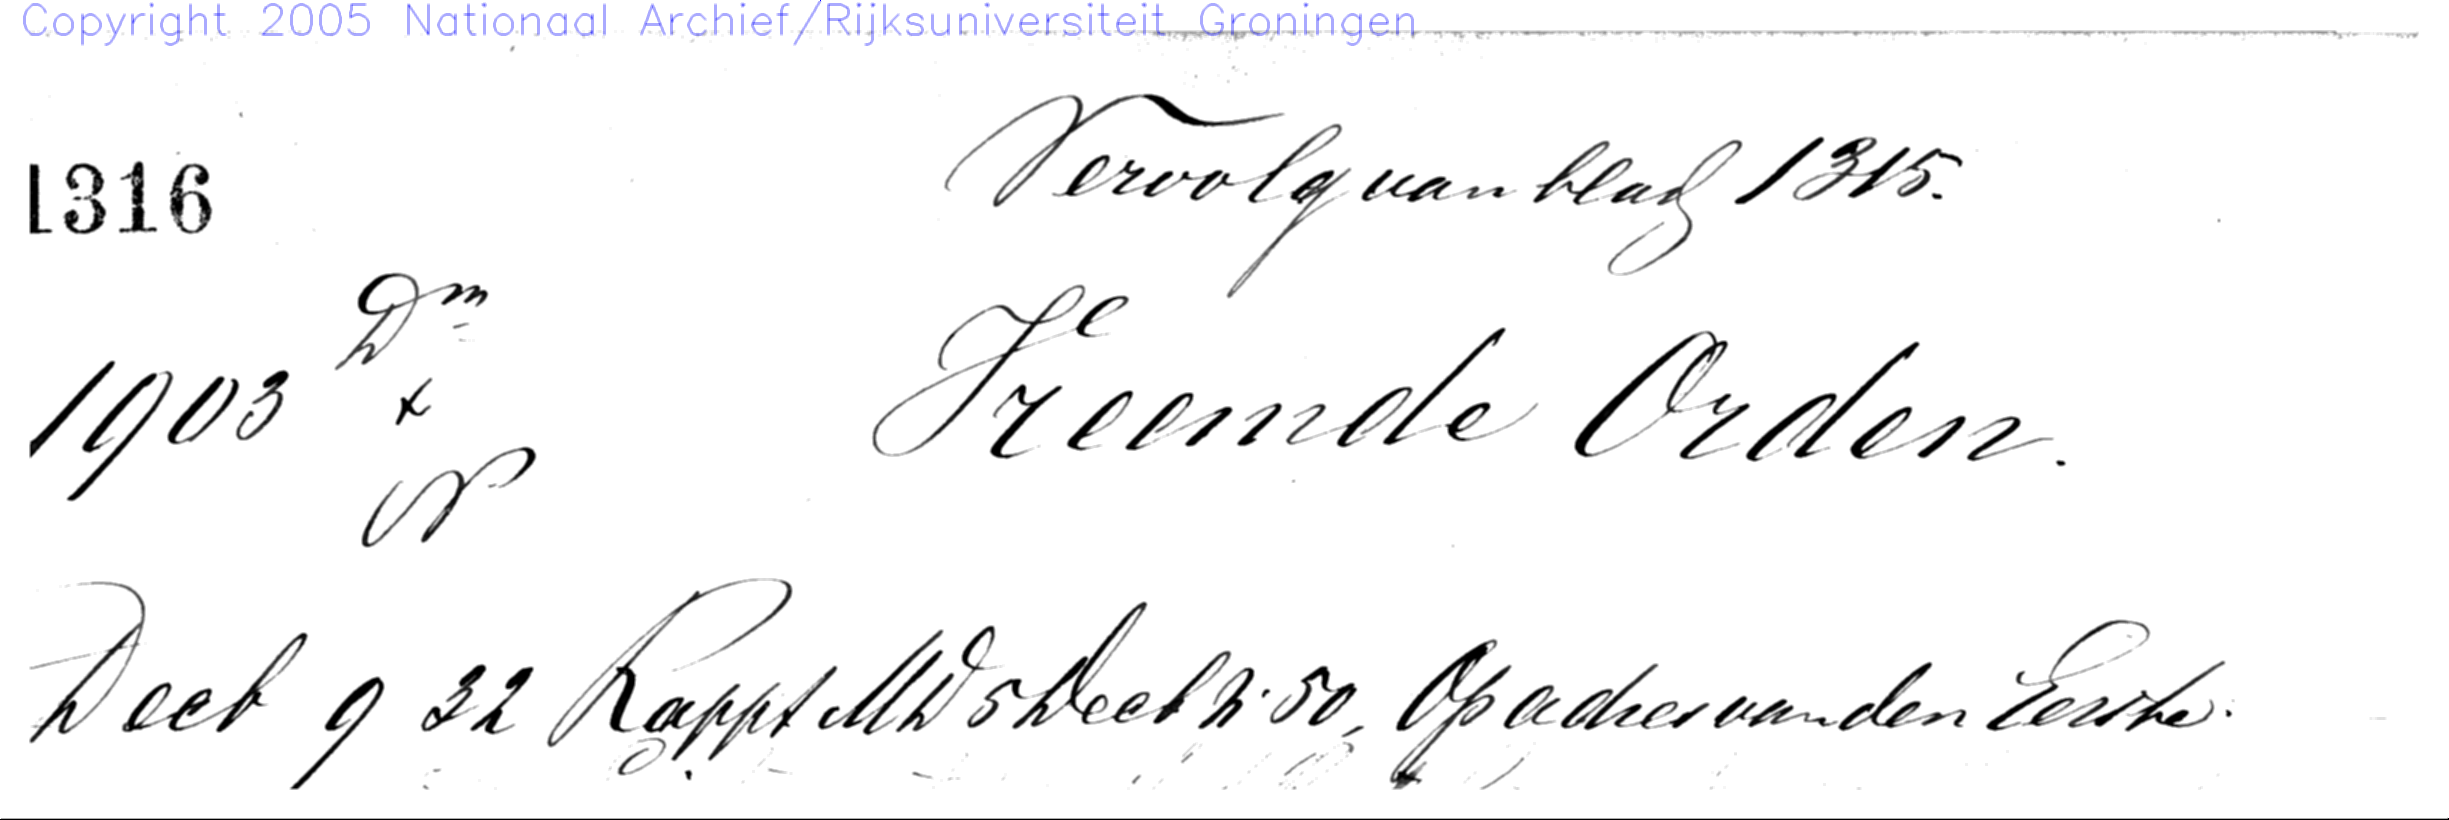 Copyright 2005 Nationaal Archief/Rijksuniversiteit Groningen
Vervolg van bladz 1315.
1316
Dm
Vreemde Orden.
1903
x
N
Decb 9 32 Rappt MD 5 Decb N. 50, Op adres van den Eerste.